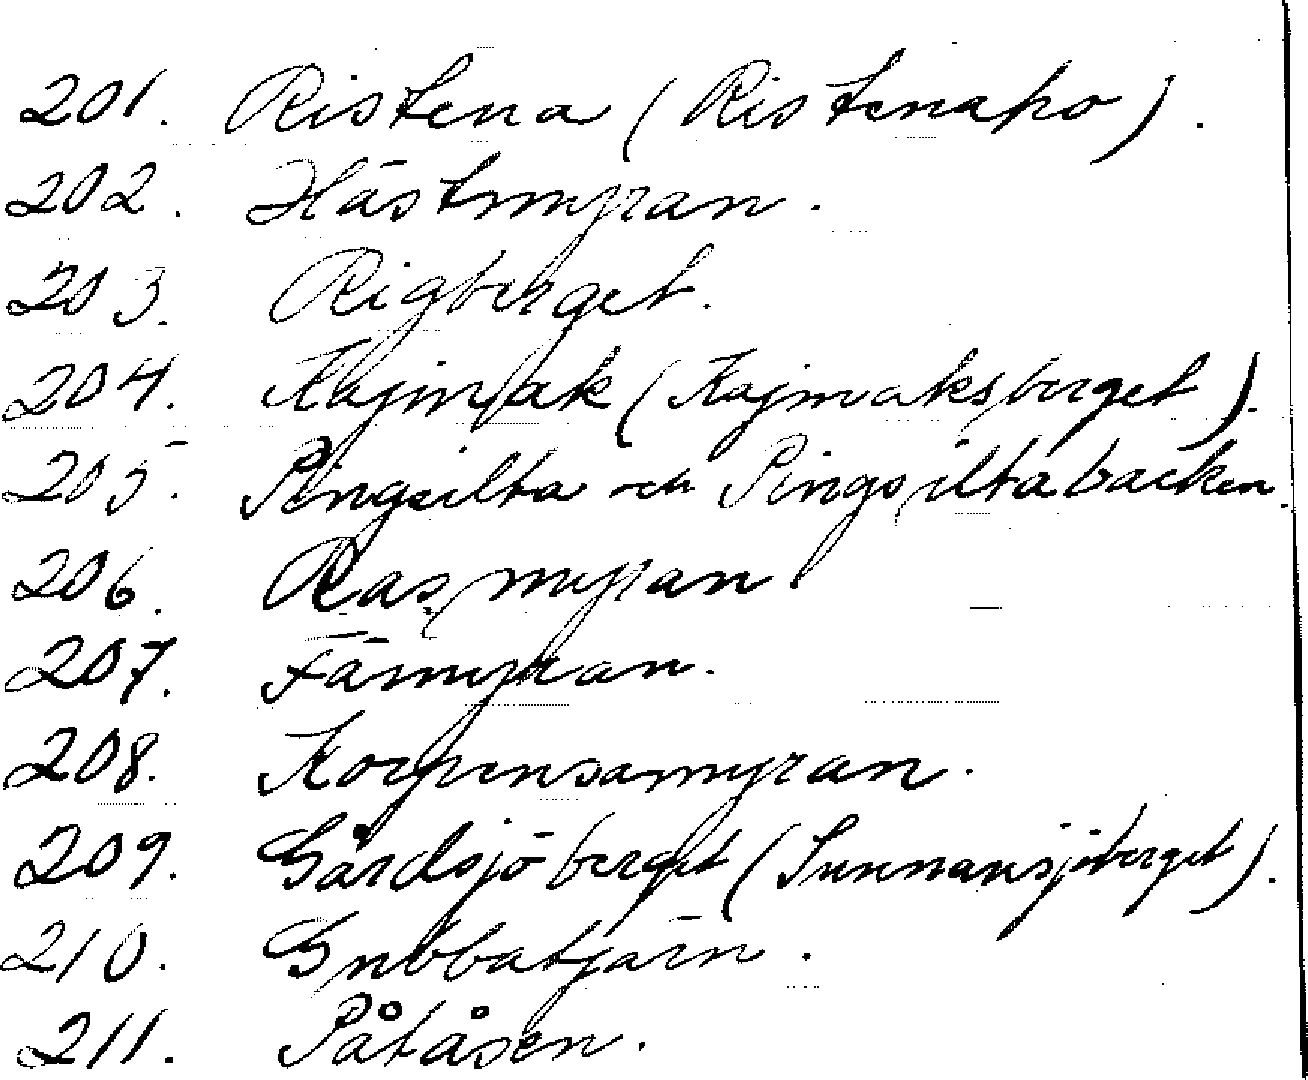 201. Ristena (Ristenaho).
202. Hästmyran.
203. Rigberget.
204. Kajmak (Kajmaksberget).
205. Pingsilta och Pingsiltabacken.
206. Rasmyran.
207. Fämyran.
208. Korpensamyran.
209. Gårdsjöberget (Sunnansjöberget).
210. Gubbatjärn.
211. Påtåsen.